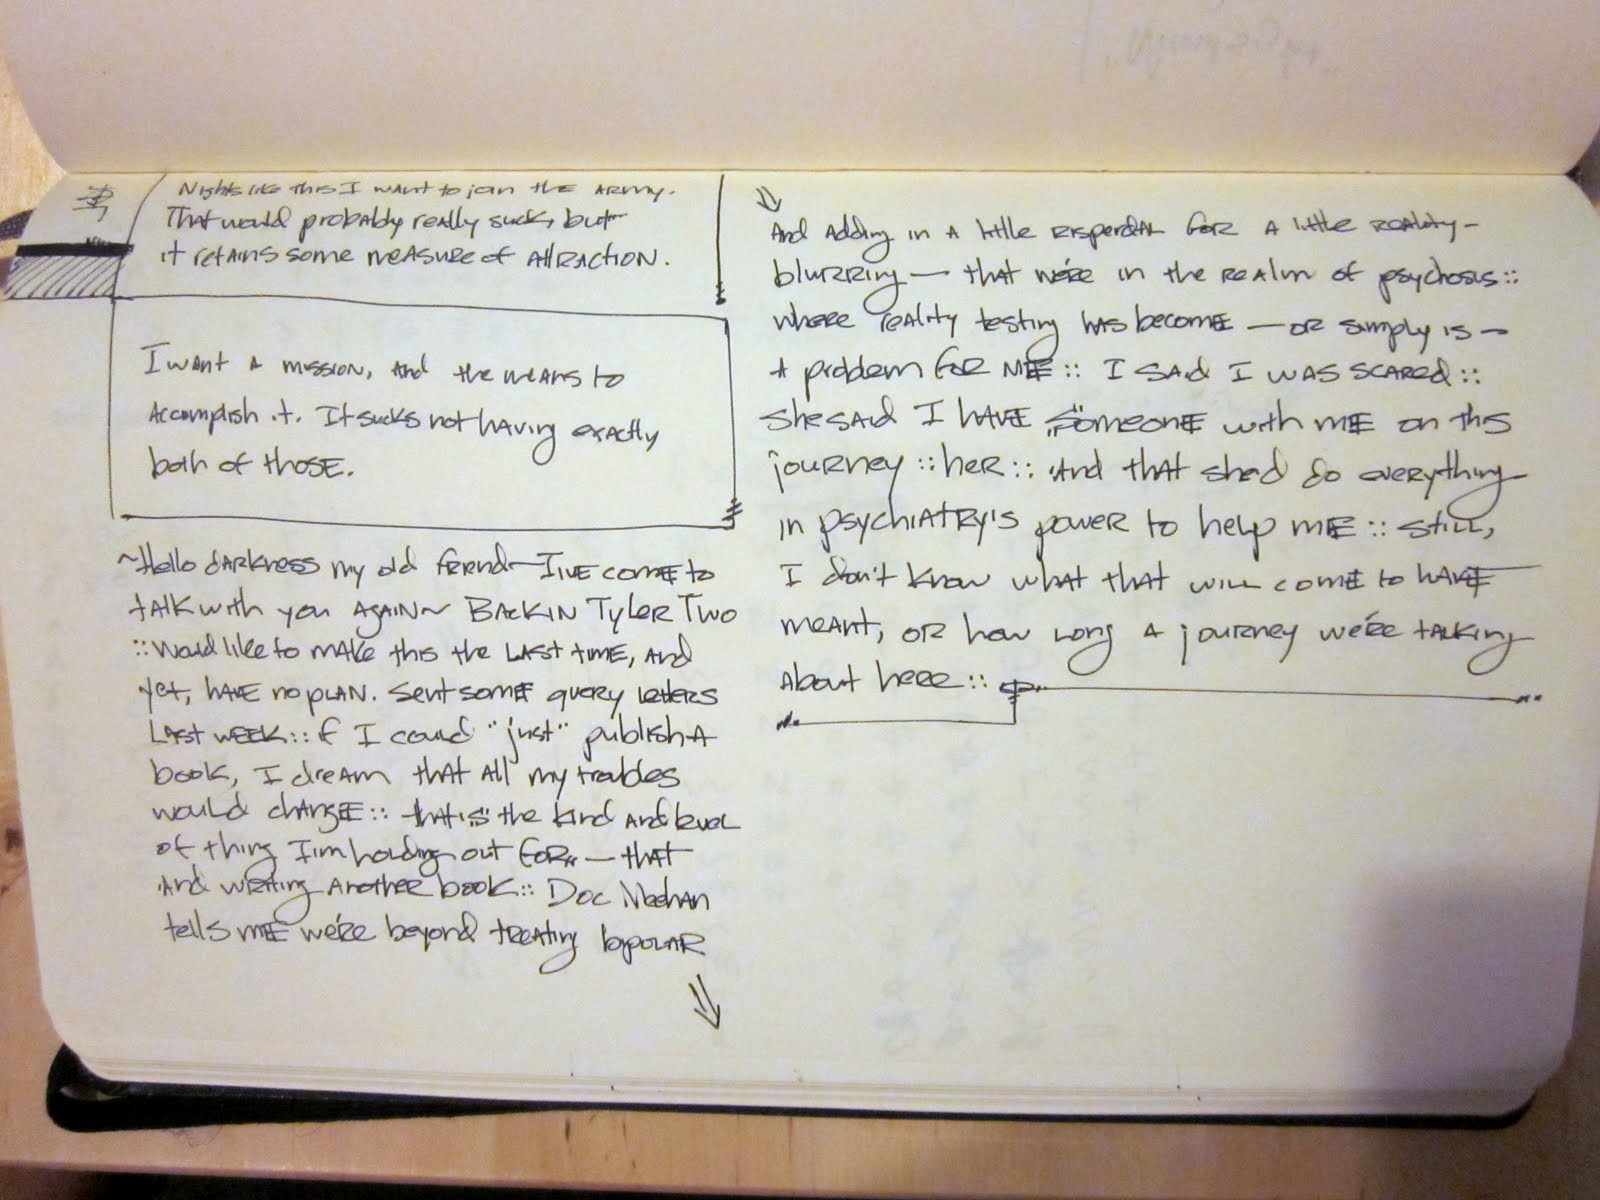 Nights like this I want to join the Army.
That would probably really suck, but
it retains some measure of attraction.
I want a mission, and the means to
accomplish it. It sucks not having exactly
both of those.
~Hello darkness my old friend—I've come to
talk with you again~ Back in Tyler Two
:: Would like to make this the last time, and
yet, have no plan. Sent some query letters
last week :: if I could "just" publish a
book, I dream that all my troubles
would change :: that is the kind and level
of thing I'm holding out for — that
and writing another book :: Doc Neehan
tells me we're beyond treating bipolar
And adding in a little risperdal for a little reality-
blurring — that we're in the realm of psychosis ::
where reality testing has become — or simply is —
a problem for me :: I said I was scared ::
she said I have someone with me on this
journey :: her :: and that she'd do everything
in psychiatry's power to help me :: still,
I don't know what that will come to have
meant, or how long a journey we're talking
about here ::